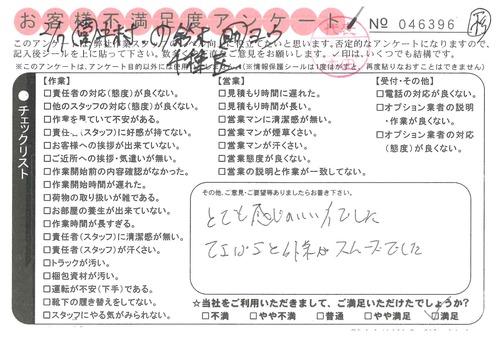 お客様不満足度アンケート
№ 046396
このアンケートは
否定的なアンケートになりますので、
記入後シールを上に貼って下さい。
※このアンケートは
(※情報保護シールは1度はがすと、再度貼りなおすことはできません)
チェックリスト
【作業】
□責任者の対応(態度)が良くない。
□他のスタッフの対応(態度)が良くない。
□作業を
ていて不安がある。
□責任
(スタッフ)に好感が持てない。
□お客様への挨拶が出来ていない。
□ご近所への挨拶・気遣いが無い。
□作業開始前の内容確認がなかった。
□作業開始時間が遅れた。
□荷物の取り扱いが雑である。
□お部屋の養生が出来ていない。
□作業時間が長すぎる。
□責任者(スタッフ)に清潔感が無い。
□責任者(スタッフ)が汗くさい。
□トラックが汚い。
□梱包資材が汚い。
□運転が不安(下手)である。
□靴下の履き替えをしてない。
□スタッフにやる気がみられない。
【営業】
□見積もり時間に遅れた。
□見積もり時間が長い。
□営業マンに清潔感が無い。
□営業マンが煙草くさい。
□営業マンが汗くさい。
□営業態度が良くない。
□営業の説明と作業が一致してない。
【受付・その他】
□電話の対応が良くない。
□オプション業者の説明
・作業が良くない。
□オプション業者の対応
(態度)が良くない。
その他、ご意見・ご要望等ありましたらお書き下さい。
とても感じのいい方でした
てきぱきと作業がスムーズでした
☆当社をご利用いただきまして、ご満足いただけたでしょうか?
□不満 □やや不満 □普通 □やや満足 □満足